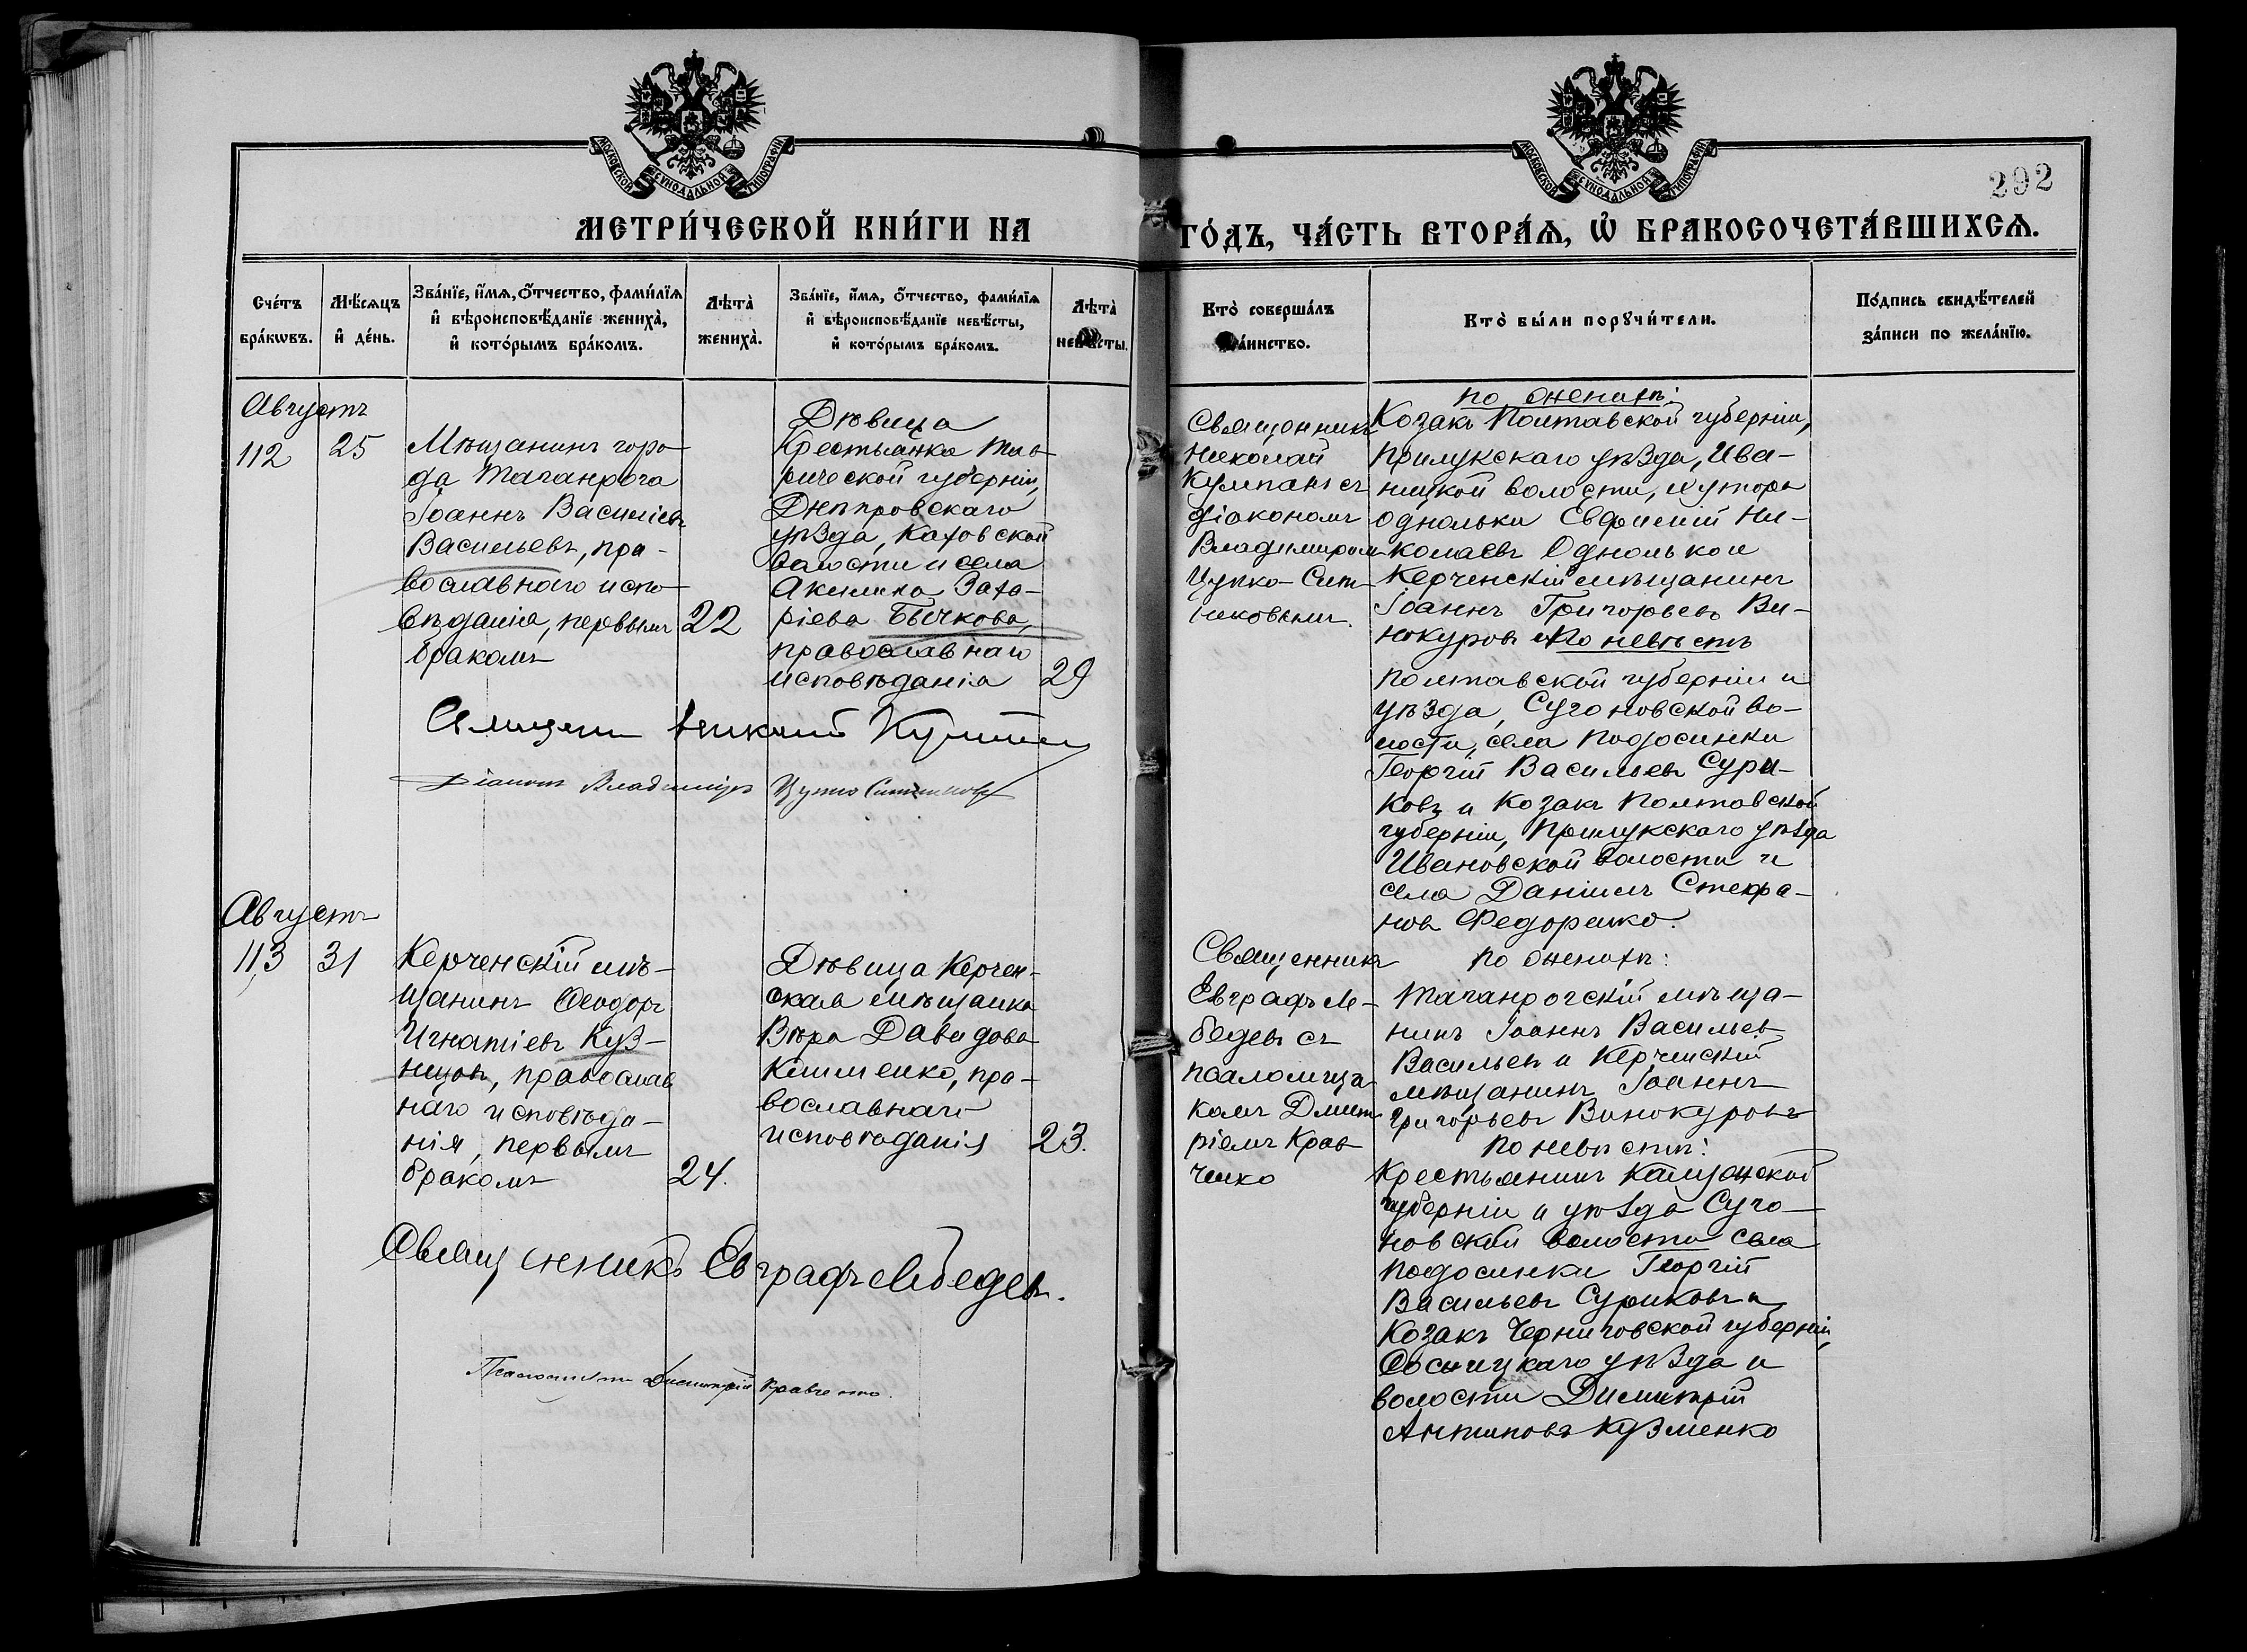 МОСКОВСКОЙ СѴНОДАЛЬНОЙ ТИПОГРАФІИ
МОСКОВСКОЙ СѴНОДАЛЬНОЙ ТИПОГРАФІИ
292
МЕТРИ́ЧЕСКОЙ КНИ́ГИ НА
ГО́ДЪ, ЧА́СТЬ ВТОРА́Ѧ, Ѽ БРАКОСОЧЕТА́ВШИХСѦ.
Сче́тъ
бра́кѡвъ.
Мѣ́сѧцъ
и҆ де́нь.
Зва́нїе, и҆́мѧ, ѻ҆́тчество, фами́лїѧ
и҆ вѣроисповѣ́данїе жениха̀,
и҆ кото́рымъ бра́комъ.
Лѣта̀
жениха̀.
Зва́нїе, и҆́мѧ, ѻ҆́тчество, фами́лїѧ
и҆ вѣроисповѣ́данїе невѣ́сты,
и҆ кото́рымъ бра́комъ.
Лѣта̀
невѣ́сты.
Кто̀ соверша́лъ
та́инство.
Кто̀ бы́ли порꙋчи́тели.
По́дпись свидѣ́телей
за́писи по жела́нїю.
Августъ
112
25
Мѣщанинъ горо-
да Таганрога
Іоаннъ Василіевъ
Васильевъ, пра-
вославнаго испо-
вѣданія, первымъ
бракомъ
22
Дѣвица
крестьянка Тав-
рической губерніи,
Днѣпровскаго
уѣзда, Каховской
волости и села
Акилина Заха-
ріева Бычкова,
православнаго
исповѣданія
29
Священникъ
Николай
Кумпанъ съ
діакономъ
Владимиромъ
Цупко-Сит-
никовымъ.
по женихѣ:
Козакъ Полтавской губерніи,
Прилукскаго уѣзда, Ива-
ницкой волости, хутора
Однольки Евфимій Ни-
колаевъ Однолько и
Керченскій мѣщанинъ
Іоаннъ Григорьевъ Ви-
нокуровъ По невѣстѣ
Полтавской губерніи и
уѣзда, Сугоновской во-
лости, села Подосинки
Георгій Васильевъ Сури-
ковъ и Козакъ Полтавской
губерніи, Прилукскаго уѣзда
Ивановской волости и
села Даніилъ Стефа-
новъ Федоренко.
Діаконъ Владимиръ Цупко Ситниковъ
Августъ
113
31
Керченскій мѣ-
щанинъ Ѳеодоръ
Игнатіевъ Куз-
нецовъ, православ
наго исповѣда-
нія, первымъ
бракомъ
24.
Дѣвица Керчен-
ская мѣщанка
Вѣра Давидова
Клименко, пра-
вославнаго
исповѣданія
23.
Священникъ
Евграфъ Ле-
бедевъ съ
псаломщи-
комъ Димит
ріемъ Крав
ченко
по женихѣ:
Таганрогскій мѣща-
нинъ Іоаннъ Васильев
Васильевъ и Керченскій
мѣщанинъ Іоаннъ
Григорьевъ Винокуровъ
по невѣстѣ:
Крестьянинъ Калужской
губерніи и уѣзда Суго-
новской волости села
Подосинки Георгій
Васильевъ Суриковъ и
Козакъ Черниговской губерніи,
Сосницкаго уѣзда и
волости Димитрій
Антиповъ Кузменко
Священникъ Евграфъ Лебедевъ.
Псаломщикъ Димитрій Кравченко.